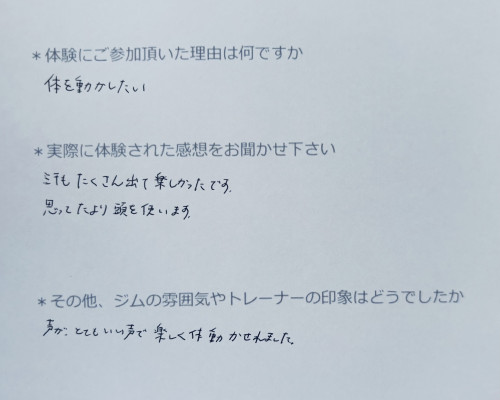 *体験にご参加頂いた理由は何ですか
体を動かしたい
*実際に体験された感想をお聞かせ下さい
汗もたくさん出て楽しかったです。
思ってたより頭を使います。
*その他、ジムの雰囲気やトレーナーの印象はどうでしたか
声が、とてもいい声で楽しく体動かせれました。